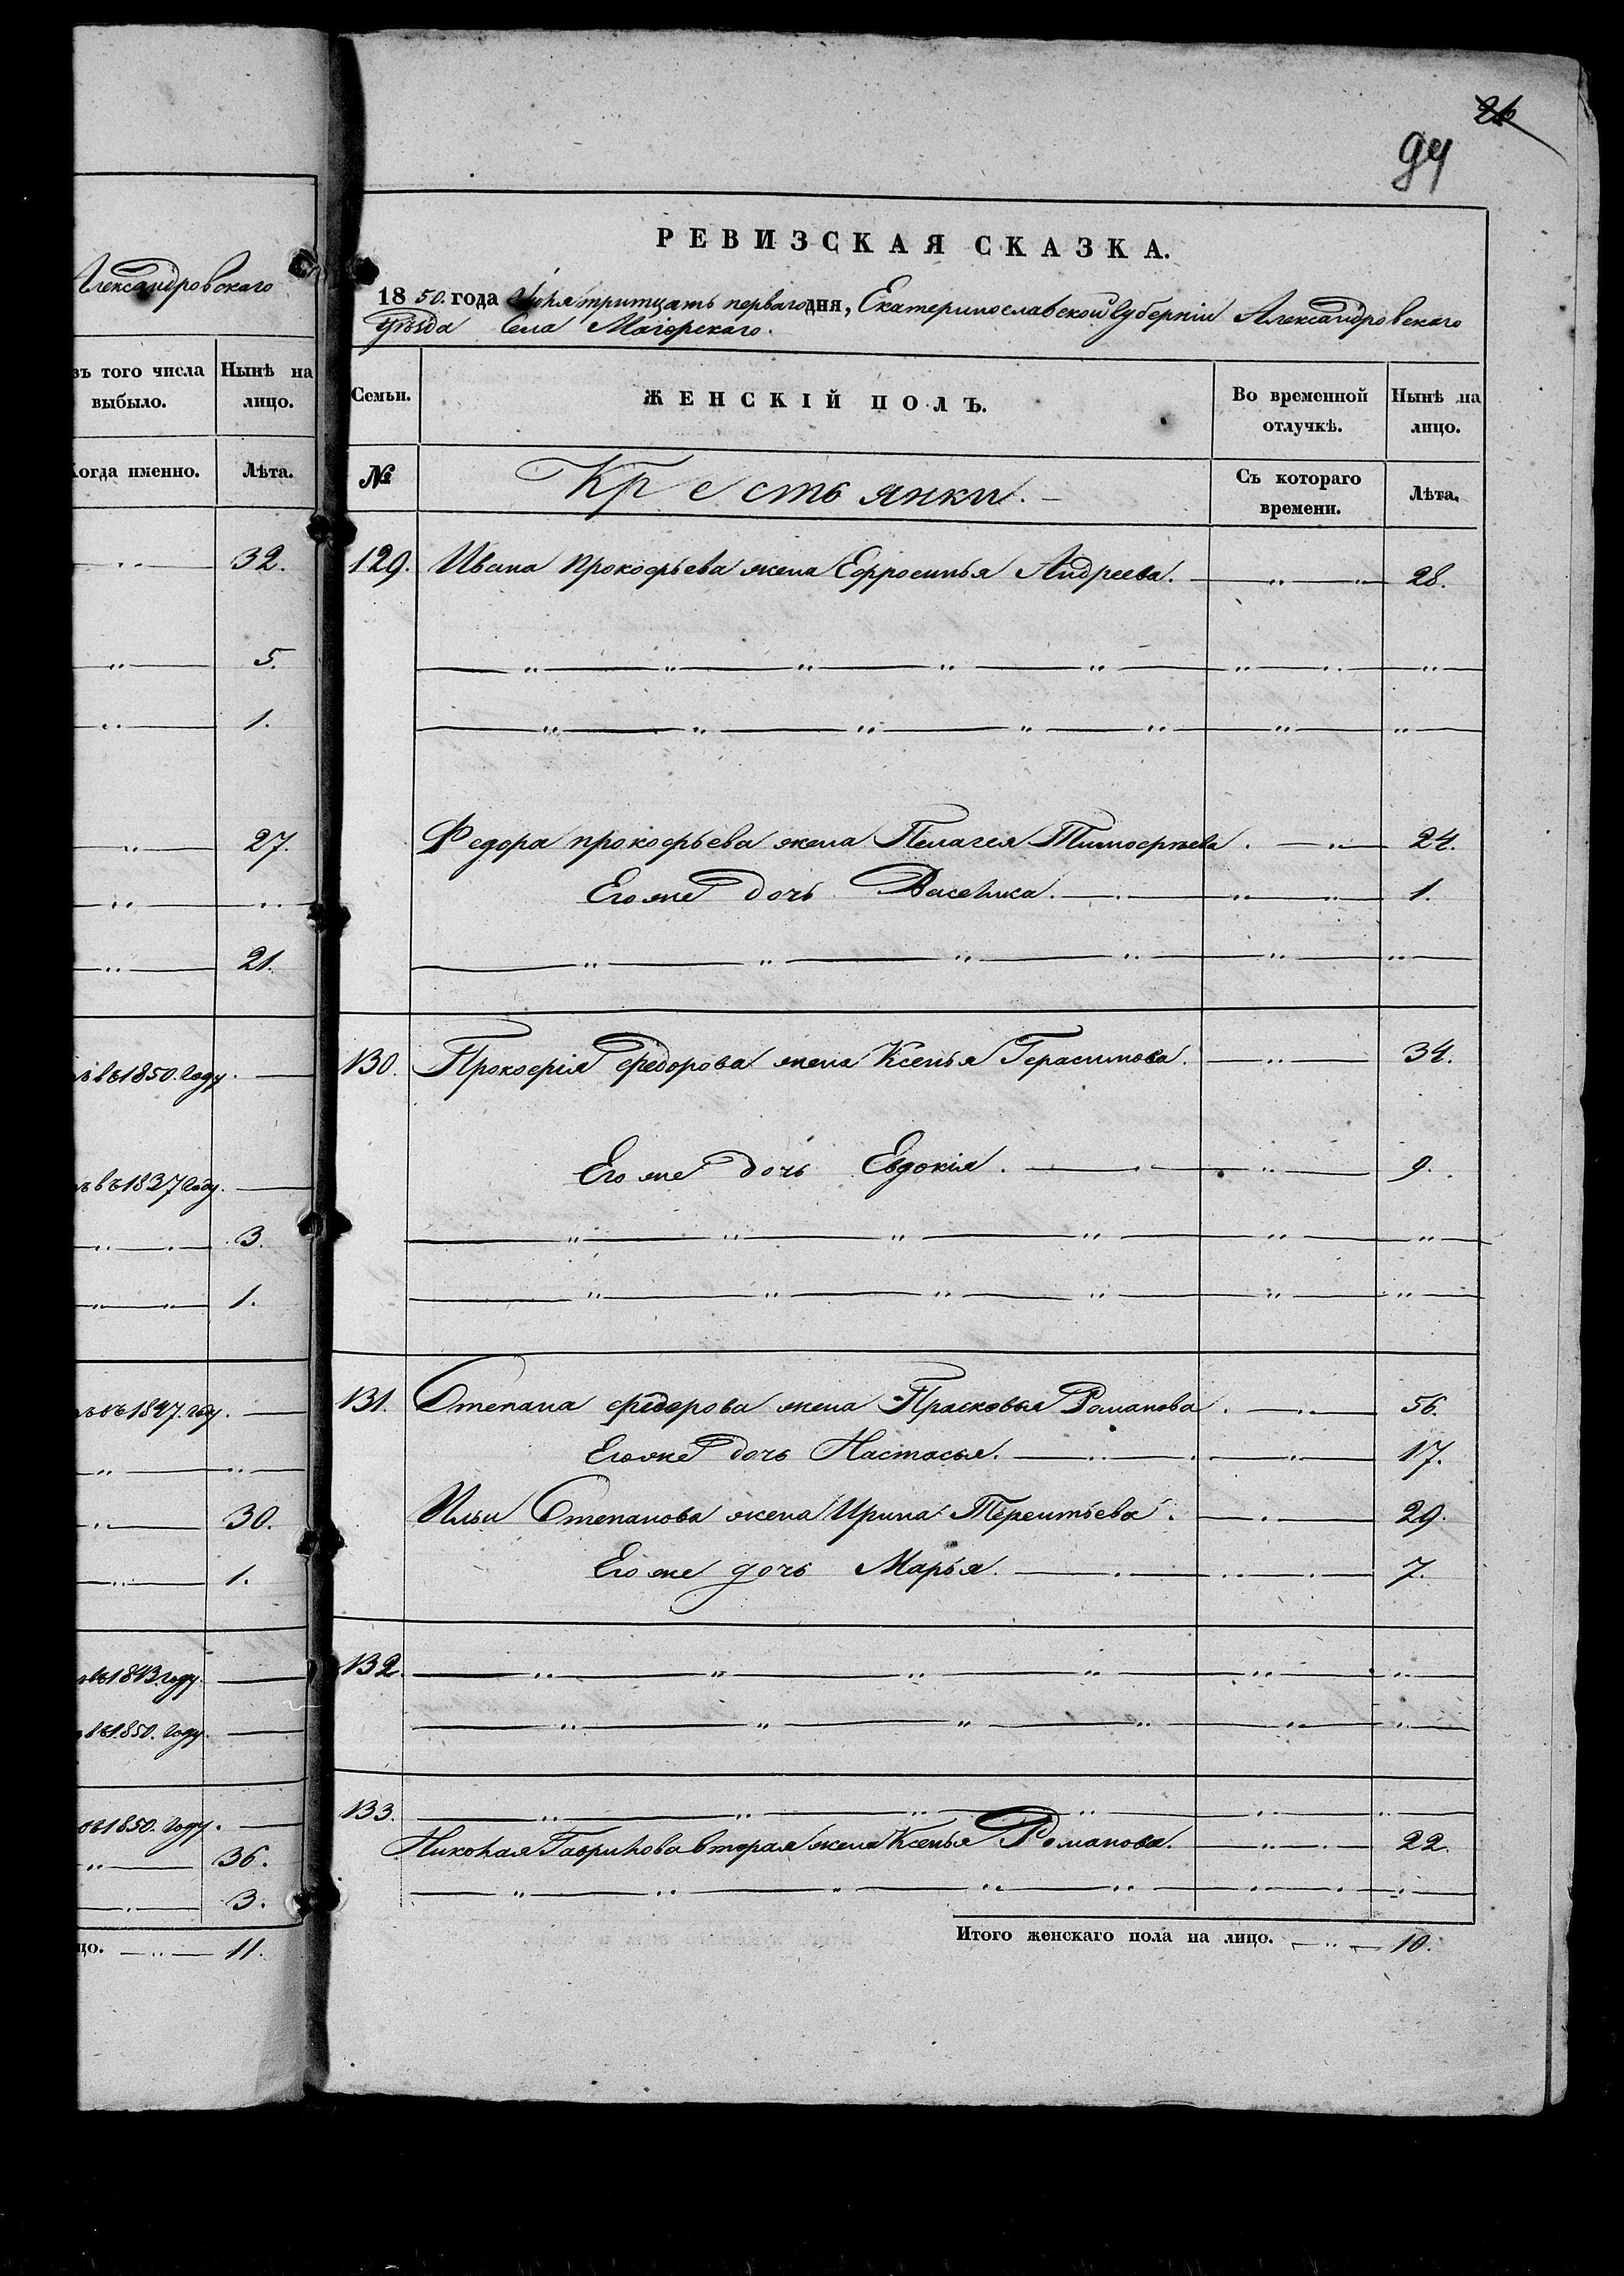 Александровскаго
въ того числа выбыло.
Нынѣ на лицо.
Когда именно.
Лѣта.
32.
5.
1.
27.
21.
въ 1850. году.
въ 1837 году.
3.
1.
въ 1847. году.
30.
1.
въ 1843 году.
въ 1850. году.
въ 1850. году.
36.
3.
цо. 11.
26
94
РЕВИЗСКАЯ СКАЗКА.
1850. года Іюля тритцать перваго дня, Екатеринославской губерніи Александровскаго
Уѣзда Села Маіорскаго.
Семьи.
ЖЕНСКІЙ ПОЛЪ.
Во временной отлучкѣ.
Нынѣ на лицо.
№
Крестьянки.
Съ котораго времени.
Лѣта.
129. Ивана Прокофьева жена Ефросинья Андреева. 28.
Федора прокофьева жена Пелагея Тимофѣева. 24.
Его же дочь Василиса. 1.
130. Прокофія Федорова жена Ксенья Герасимова. 34.
Его же дочь Евдокія. 9.
131. Степана федорова жена Прасковья Романова. 56.
Его же дочь Настасья. 17.
Ильи Степанова жена Ирина Терентьева. 29.
Его же дочь Марья. 7.
132.
133.
Николая Гаврилова вторая жена Ксенья Романова. 22.
Итого женскаго пола на лицо. 10.